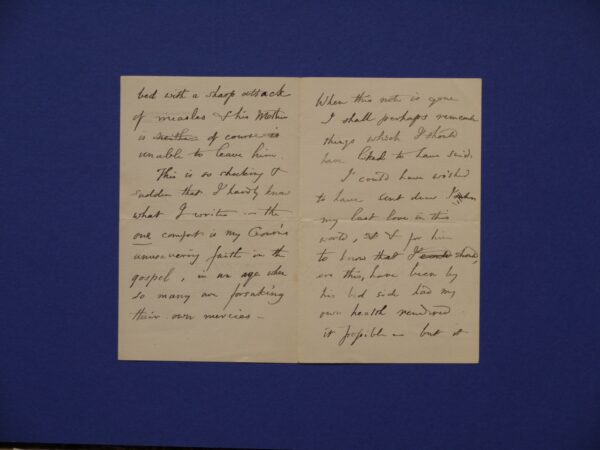 bed with a sharp attack
of measles & his Mother
is neither of course is
unable to leave him.
This is so shocking &
sudden that I hardly know
what I write — the
one comfort is my Cousin's
unwavering faith in the
gospel, in an age when
so many are forsaking
their own mercies —
When this note is gone
I shall perhaps remember
things which I should
have liked to have said.
I could have wished
to have sent dear
my last love in this
world, & for him
to know that I could should,
ere this, have been by
his bed side had my
own health rendered
it possible — but it